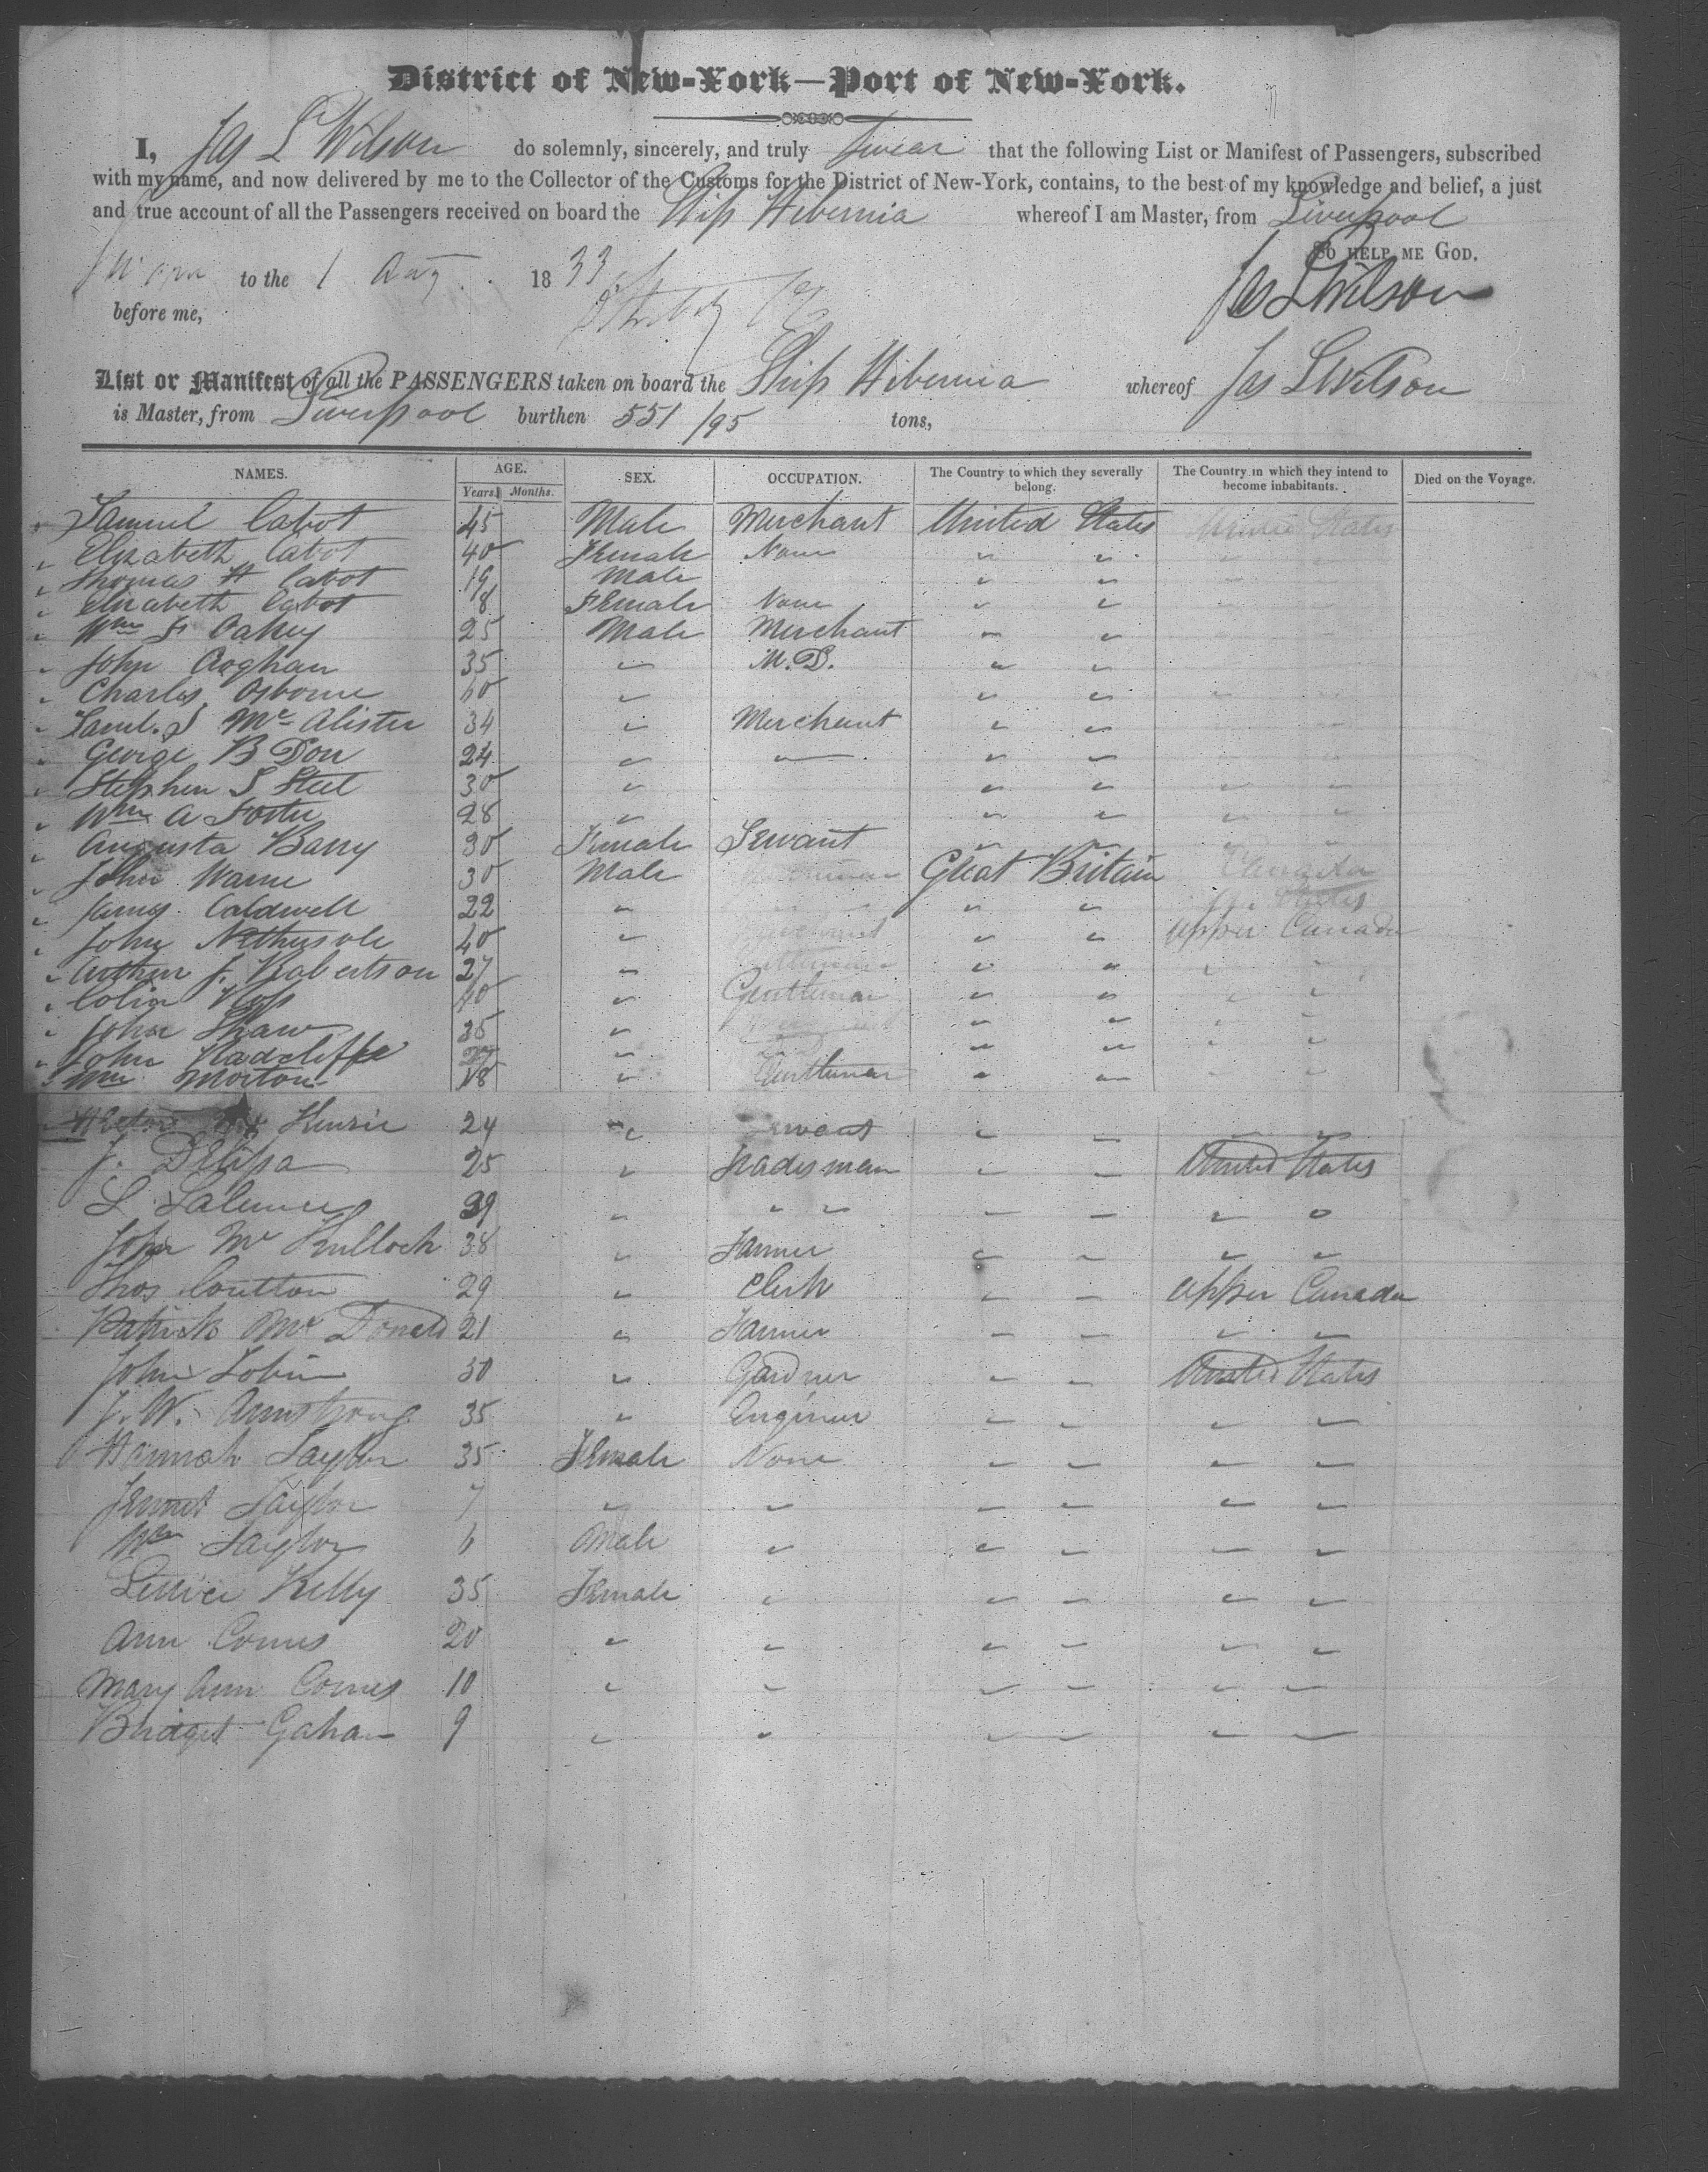 District of New-York—Port of New-York.
I, Jas L Wilson do solemnly, sincerely, and truly swear that the following List or Manifest of Passengers, subscribed
with my name, and now delivered by me to the Collector of the Customs for the District of New-York, contains, to the best of my knowledge and belief, a just
and true account of all the Passengers received on board the Ship Hibernia whereof I am Master, from Liverpool
So help me God.
Sworn to the 1 Aug 1833
Jas L Wilson
before me,
List or Manifest of all the PASSENGERS taken on board the Ship Hibernia whereof Jas L Wilson
is Master, from Liverpool burthen 551/95 tons,
NAMES. AGE. SEX. OCCUPATION. The Country to which they severally belong. The Country in which they intend to become inhabitants. Died on the Voyage.
Years. Months.
Samuel Cabot 45 Male Merchant United States United States
" Elizabeth Cabot 40 Female None " "
" Thomas H Cabot 19 Male " "
" Elizabeth Cabot 8 Female None " "
" Wm F Oakey 25 Male Merchant " "
" John Croghan 35 " M.D. " "
" Charles Osborne 60 " " "
" Saml. S McAlister 34 " Merchant " "
" George B Dorr 24 " — " "
" Stephen S Steel 30 " " "
" Wm A Foster 28 " " "
" Augusta Barry 30 Female Servant " "
" John Warne 30 Male Great Britain
" James Caldwell 22 " " " States
" John 40 " " " Upper Canada
" Arthur J. Robertson 27 " " " " "
" Colin Ross 40 " Gentleman " " " "
" John Shaw 35 " " " " "
" John Radcliffe 27 " " " " "
" Wm Morton 18 " Gentleman " " " "
Kensie 24 " Servant " " " "
J. 25 " Tradesman " " United States
S. 39 " " " " " " "
John McKulloch 38 " Farmer " " " "
Thos Coulton 29 " Clerk " " Upper Canada
Patrick McDonald 21 " Farmer " " " "
John Tobin 30 " Gardner " " United States
J. W. Armstrong 35 " Engineer " " " "
Hannah Taylor 35 Female None " " " "
Jennet Taylor 7 " " " " " "
Wm Taylor 6 Male " " " " "
Kelly 35 Female " " " " "
Ann Comes 20 " " " " " "
Mary Ann Comes 10 " " " " " "
Bridget Gahan 9 " " " " " "